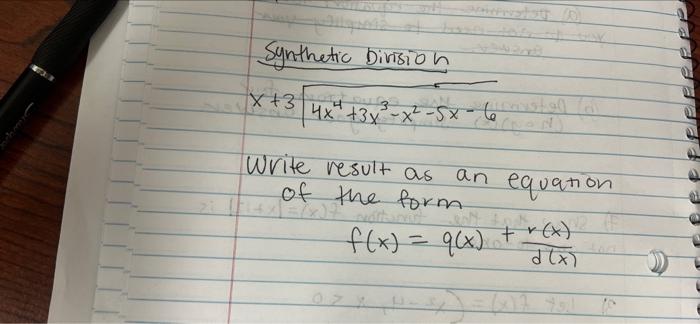 Synthetic Division
x+3 4x⁴+3x³-x²-5x-6
Write result as an equation
of the form
f(x) = q(x) + r(x)/d(x)